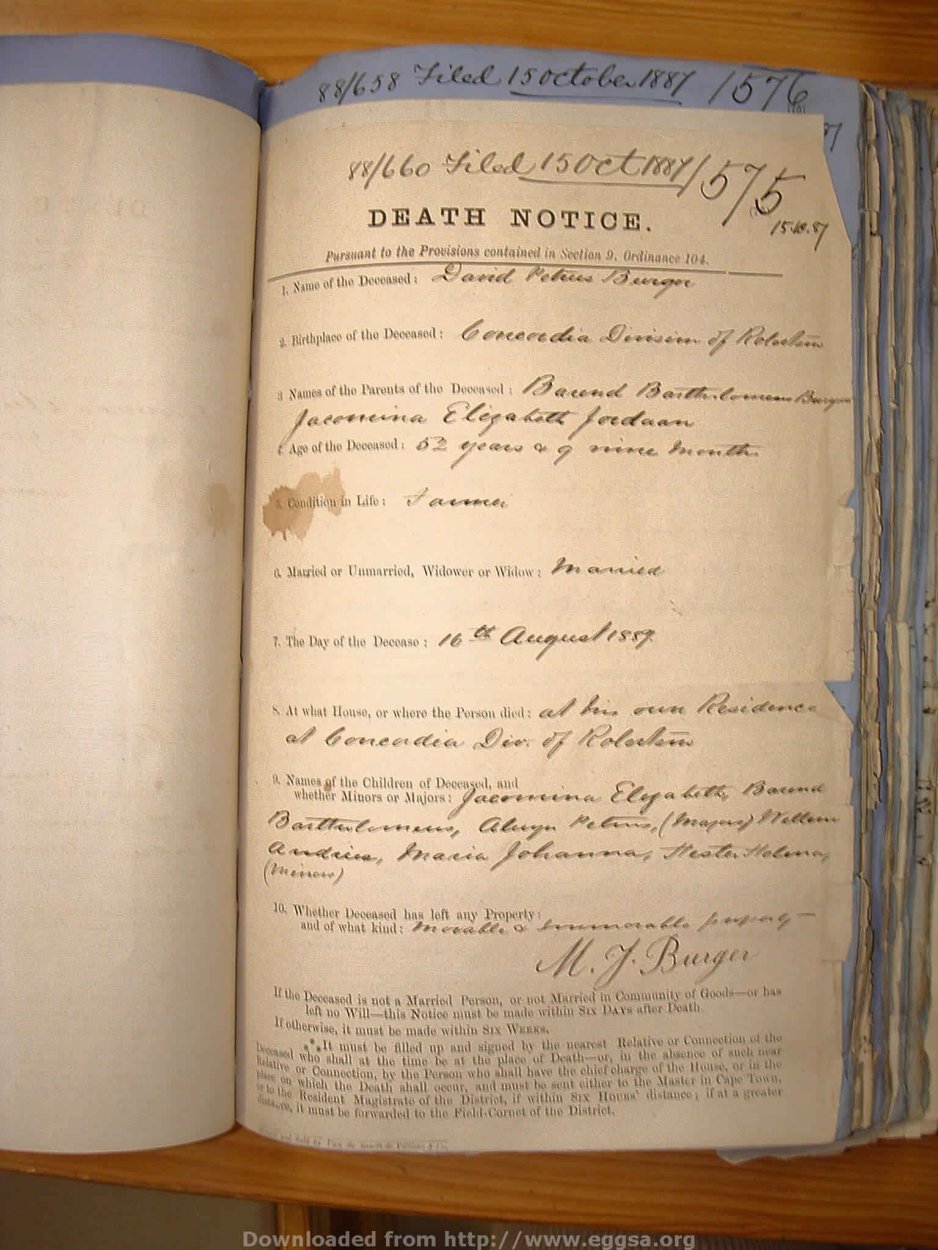 88/658 Filed 15 October 1887 1576
88/660 Filed 15 Oct 1887/575
15.10.87
DEATH NOTICE.
Pursuant to the Provisions contained in Section 9, Ordinance 104.
1. Name of the Deceased: David Petrus Burger
2. Birthplace of the Deceased: Concordia Division of Robertson
3 Names of the Parents of the Deceased: Barend Bartholomeus Burger
Jacomina Elizabeth Jordaan
4. Age of the Deceased: 52 years & 9 nine Month
5. Condition in Life: Farmer
6. Married or Unmarried, Widower or Widow: Married
7. The Day of the Decease: 16th August 1887
8. At what House, or where the Person died: at his own Residence
at Concordia Div. of Robertson
9. Names of the Children of Deceased, and
whether Minors or Majors: Jacomina Elizabeth, Barend
Bartholomeus, Alwyn Petrus, (Majors) Willem
Andries, Maria Johanna, Hester Helena,
(Minors)
10. Whether Deceased has left any Property;
and of what kind: Movable & Immovable property
M. J. Burger
If the Deceased is not a Married Person, or not Married in Community of Goods—or has
left no Will—this Notice must be made within Six Days after Death.
If otherwise, it must be made within Six Weeks.
It must be filled up and signed by the nearest Relative or Connection of the
Deceased who shall at the time be at the place of Death—or, in the absence of such near
Relative or Connection, by the Person who shall have the chief charge of the House, or in the
place on which the Death shall occur, and must be sent either to the Master in Cape Town,
or to the Resident Magistrate of the District, if within Six Hours' distance; if at a greater
distance, it must be forwarded to the Field-Cornet of the District.
Downloaded from http://www.eggsa.org